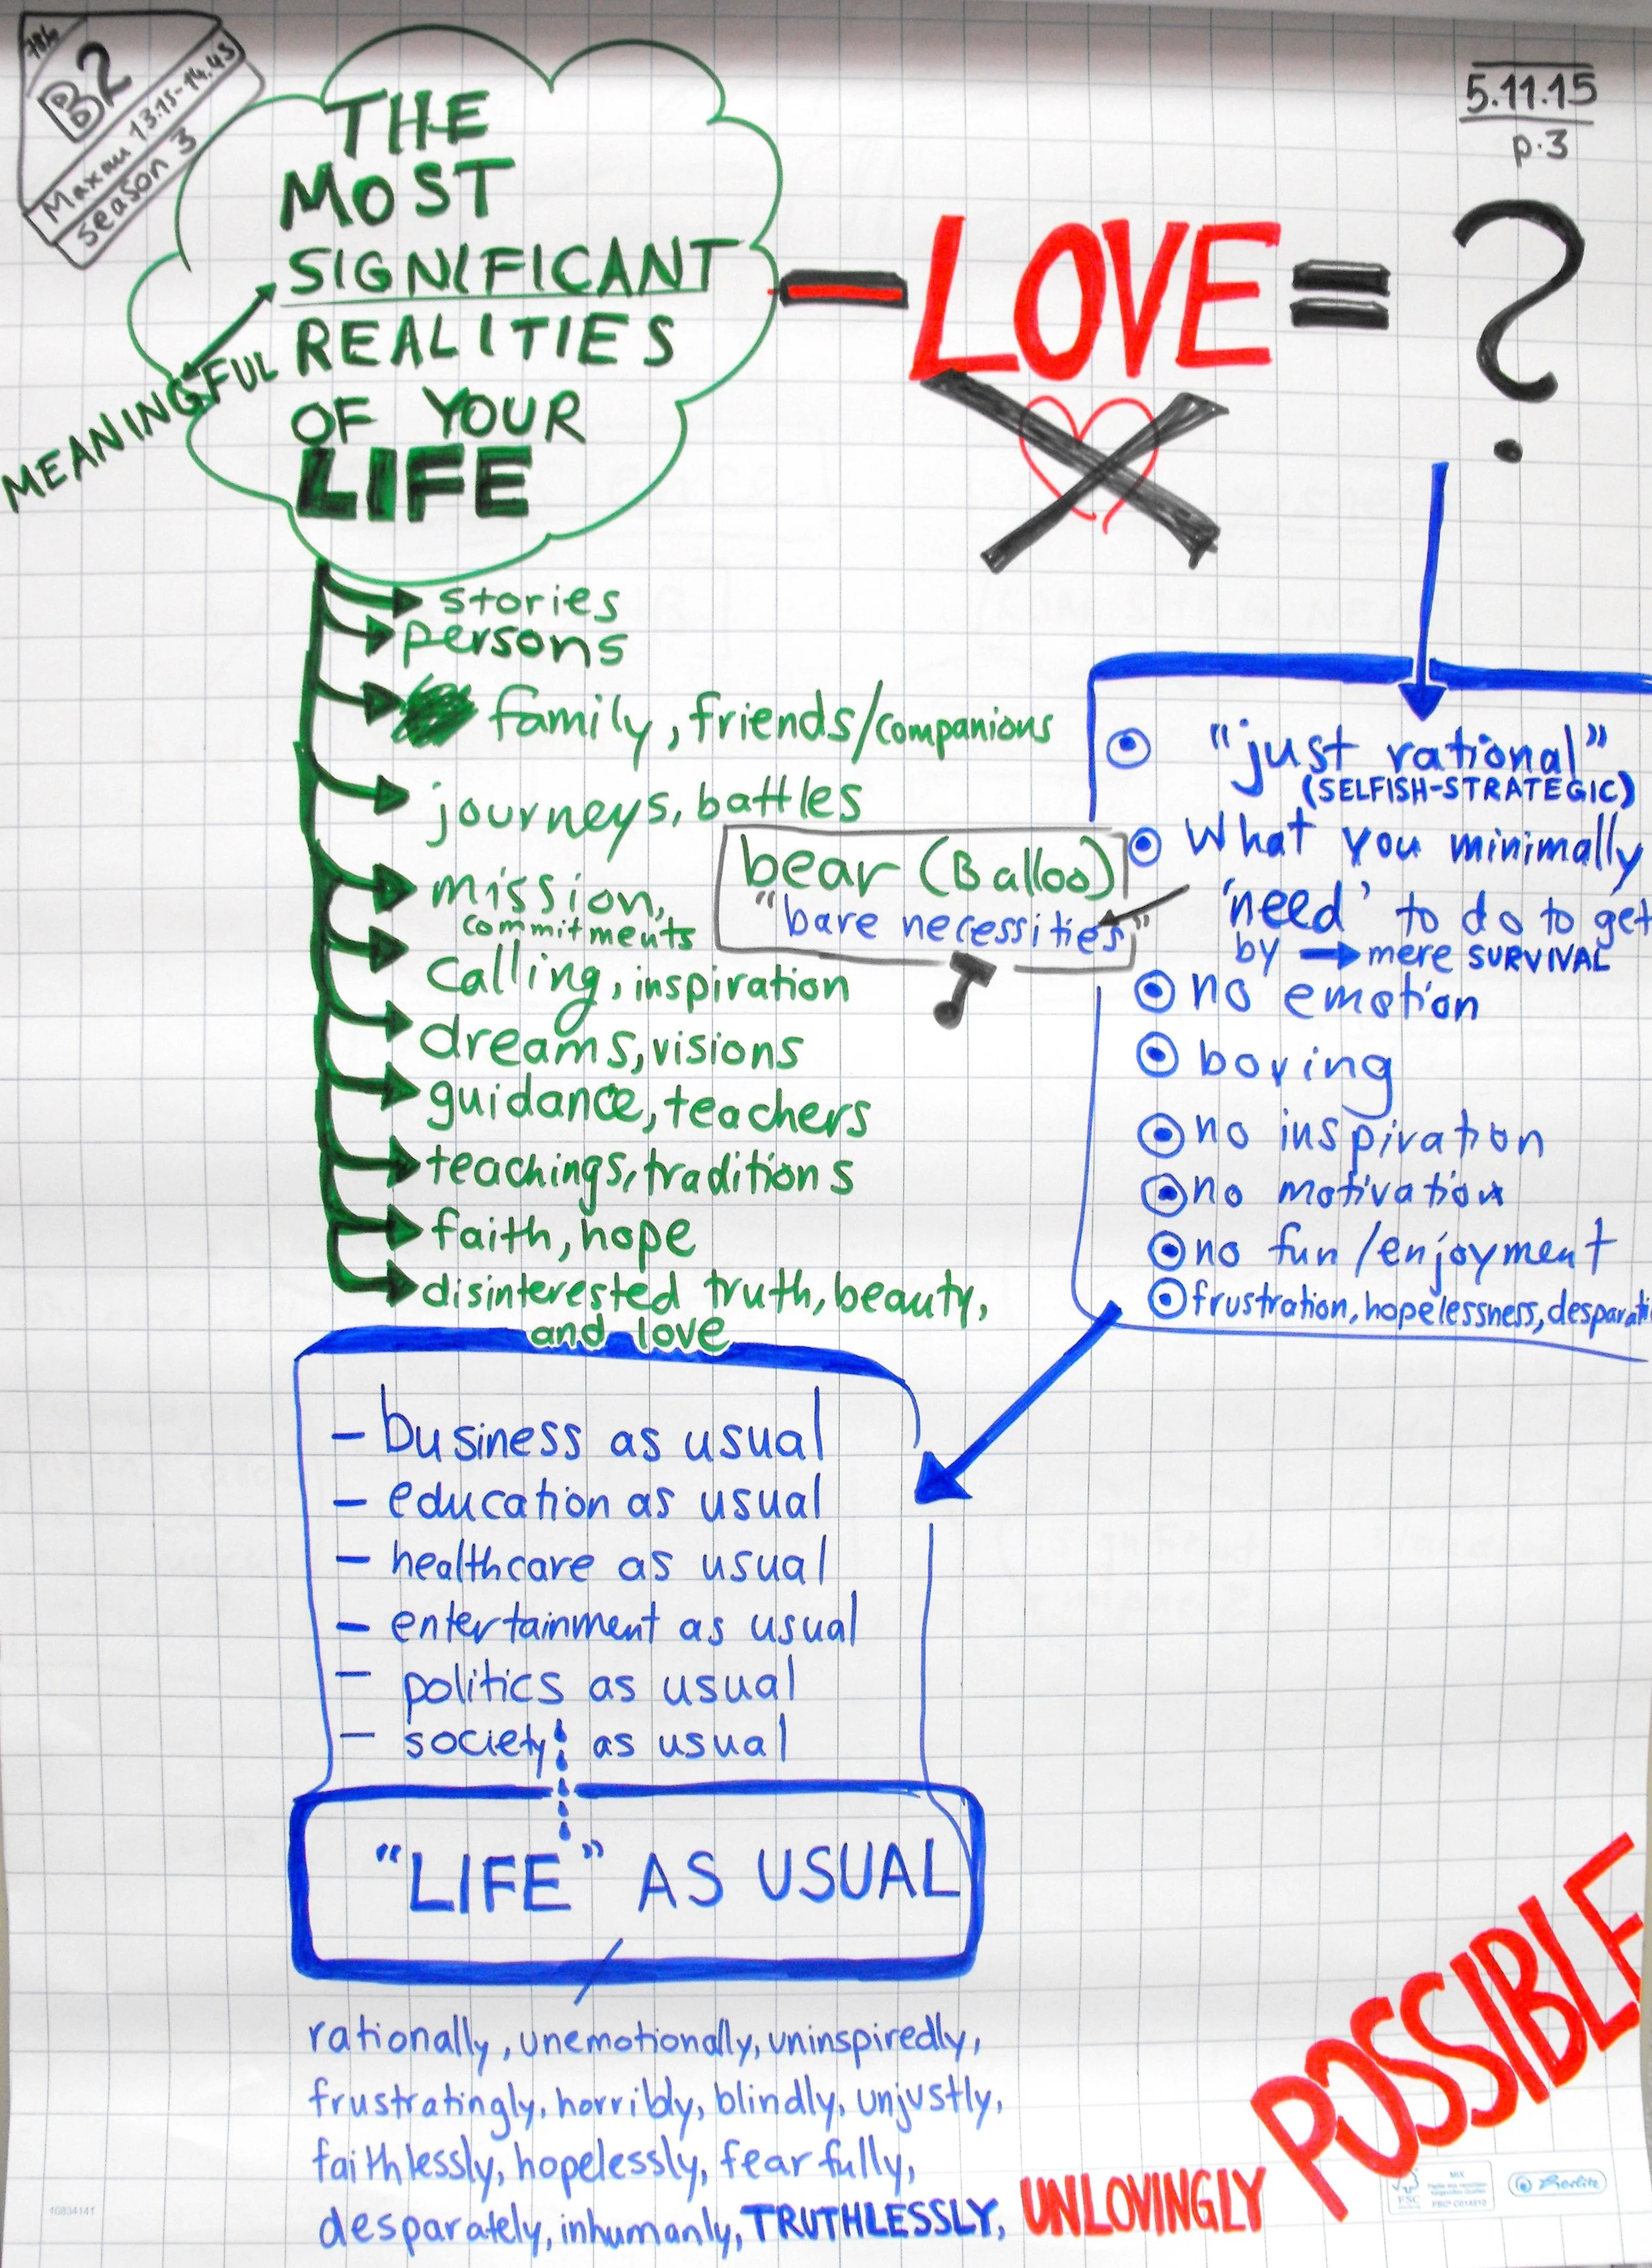 B2
Maxau 13:15-14.45
season 3
5.11.15
p.3
THE
MOST
SIGNIFICANT
REALITIES
OF YOUR
LIFE
MEANINGFUL
– LOVE = ?
stories
persons
family, friends/companions
journeys, battles
mission,
commitments
calling, inspiration
dreams, visions
guidance, teachers
teachings, traditions
faith, hope
disinterested truth, beauty,
and love
bear (Balloo)
"bare necessities"
"just rational"
(SELFISH-STRATEGIC)
What you minimally
'need' to do to get
by → mere SURVIVAL
no emotion
boring
no inspiration
no motivation
no fun/enjoyment
frustration, hopelessness, desparati
– business as usual
– education as usual
– healthcare as usual
– entertainment as usual
– politics as usual
– society as usual
"LIFE" AS USUAL
rationally, unemotionally, uninspiredly,
frustratingly, horribly, blindly, unjustly,
faithlessly, hopelessly, fearfully,
desparately, inhumanly, TRUTHLESSLY, UNLOVINGLY
POSSIBLE
10834141
FSC
MIX
Berlitz